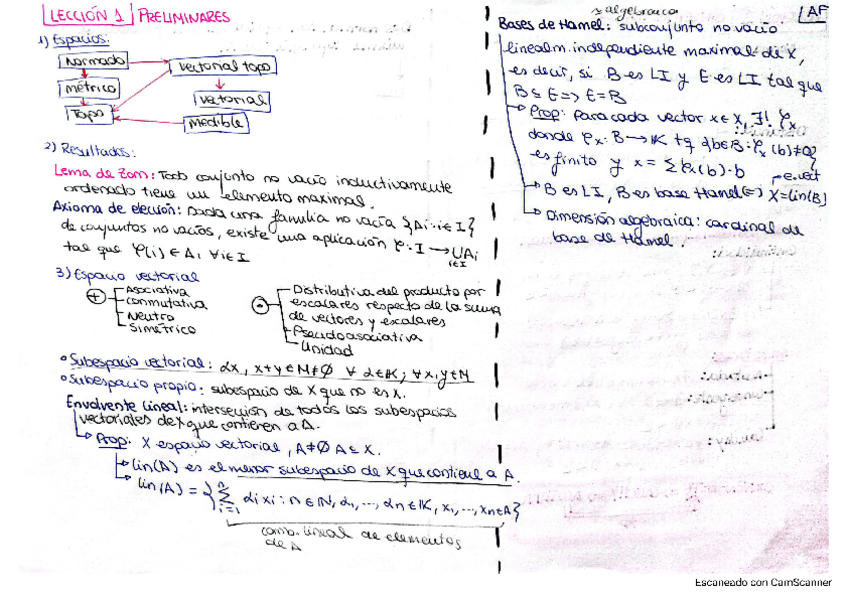 LECCIÓN 1 | PRELIMINARES
1) Espacios:
Normado
métrico
Topo
vectorial topo
vectorial
Medible
2) Resultados:
Lema de Zorn: Todo conjunto no vacío inductivamente
ordenado tiene un elemento maximal.
Axioma de elección: Dada una familia no vacía {Ai: i∈I}
de conjuntos no vacíos, existe una aplicación φ: I → ∪Ai
i∈I
tal que φ(i) ∈ Ai ∀i∈I
3) Espacio vectorial
+
Asociativa
Conmutativa
Neutro
Simétrico
·
Distributiva del producto por
escalares respecto de la suma
de vectores y escalares
Pseudoasociativa
Unidad
• Subespacio vectorial: αx, x+y∈M≠∅ ∀ α∈K; ∀x,y∈M
• Subespacio propio: subespacio de X que no es X.
Envolvente lineal: intersección de todos los subespacios
vectoriales de X que contienen a A.
↳ Prop: X espacio vectorial, A≠∅ A⊆X.
↳ lin(A) es el menor subespacio de X que contiene a A.
↳ lin(A) = {∑ᵢ₌₁ⁿ αixi : n∈ℕ, α1, ..., αn∈K, x1, ..., xn∈A}
comb. lineal de elementos
de A
AF
algebraica
Bases de Hamel: subconjunto no vacío
linealm. independiente maximal de X,
es decir, si B es LI y E es LI tal que
B⊆E ⇒ E=B
↳ Prop: para cada vector x∈X, ∃! φx
donde φx: B→K tq {b∈B: φx(b)≠0}
es finito y x = ∑φx(b)·b
↳ B es LI, B es base Hamel ⇔ X=lin(B)
↳ Dimensión algebraica: cardinal de
base de Hamel.
Escaneado con CamScanner